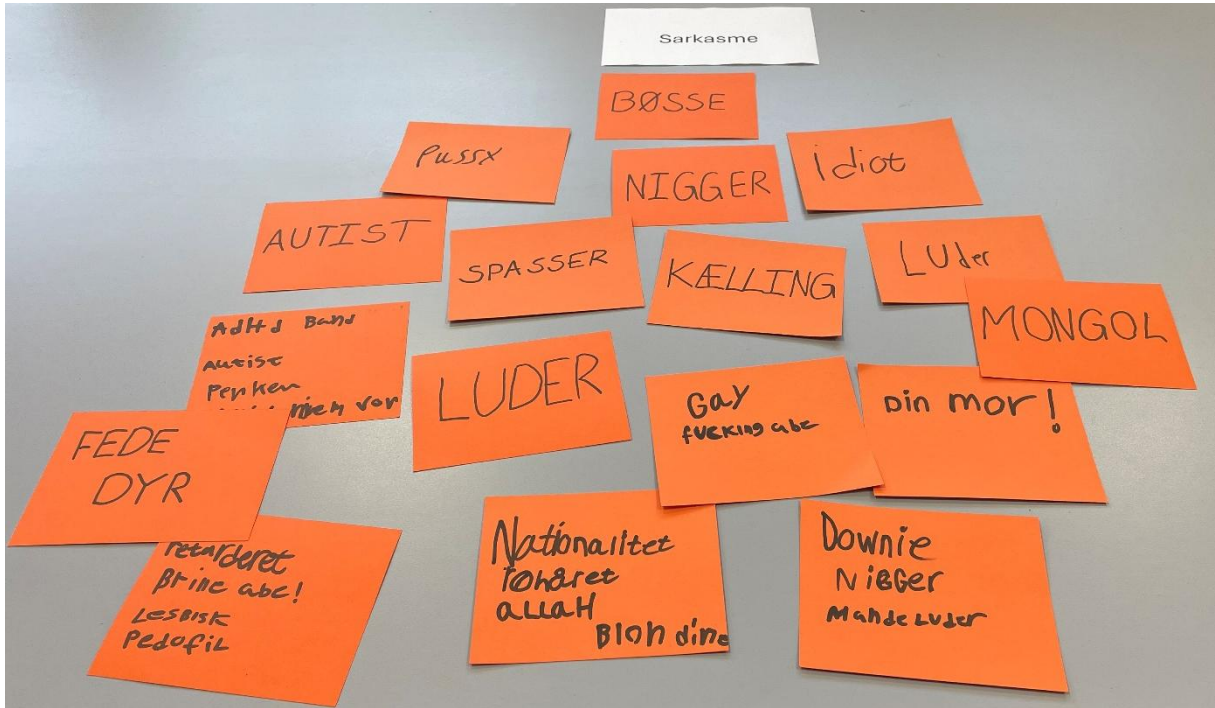 Sarkasme
BØSSE
Pussy
NIGGER
idiot
AUTIST
SPASSER
KÆLLING
LUder
MONGOL
AdHd Band
Autist
Perker
LUDER
Gay
fucking abe
Din mor!
FEDE
DYR
retarderet
abe!
Lesbisk
Pedofil
Nationalitet
allaH
Blondine
Downie
NiGGer
Mandeluder